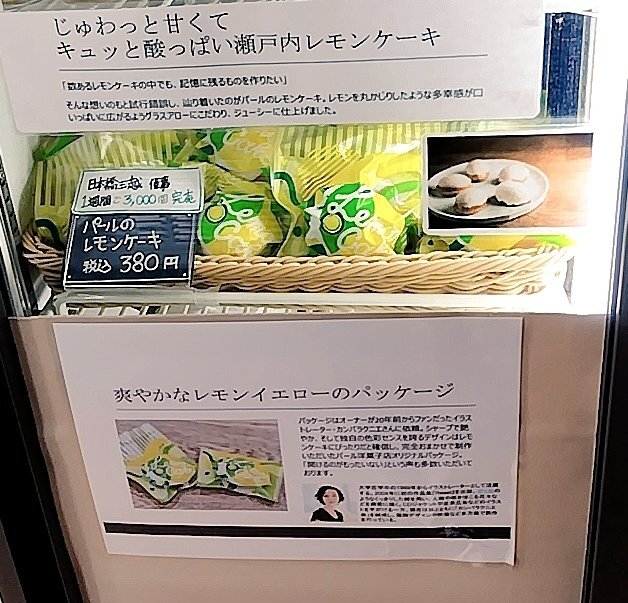 じゅわっと甘くて
キュッと酸っぱい瀬戸内レモンケーキ
「数あるレモンケーキの中でも、記憶に残るものを作りたい」
そんな想いのもと試行錯誤し、辿り着いたのがパールのレモンケーキ。レモンを丸かじりしたような多幸感が口
いっぱいに広がるようグラスアローにこだわり、ジューシーに仕上げました。
日本橋三越 催事
1週間で3,000個完売
パールの
レモンケーキ
税込 380円
爽やかなレモンイエローのパッケージ
パッケージはオーナーが20年前からファンだったイラス
トレーター・カンバラクニエさんに依頼。シャープで艶
やか、そして独自の色彩センスを誇るデザインはレモン
ケーキにぴったりだと確信し、完全おまかせで制作
いただいたパール洋菓子店オリジナルパッケージ。
「開けるのがもったいない」という声も多数いただいて
おります。